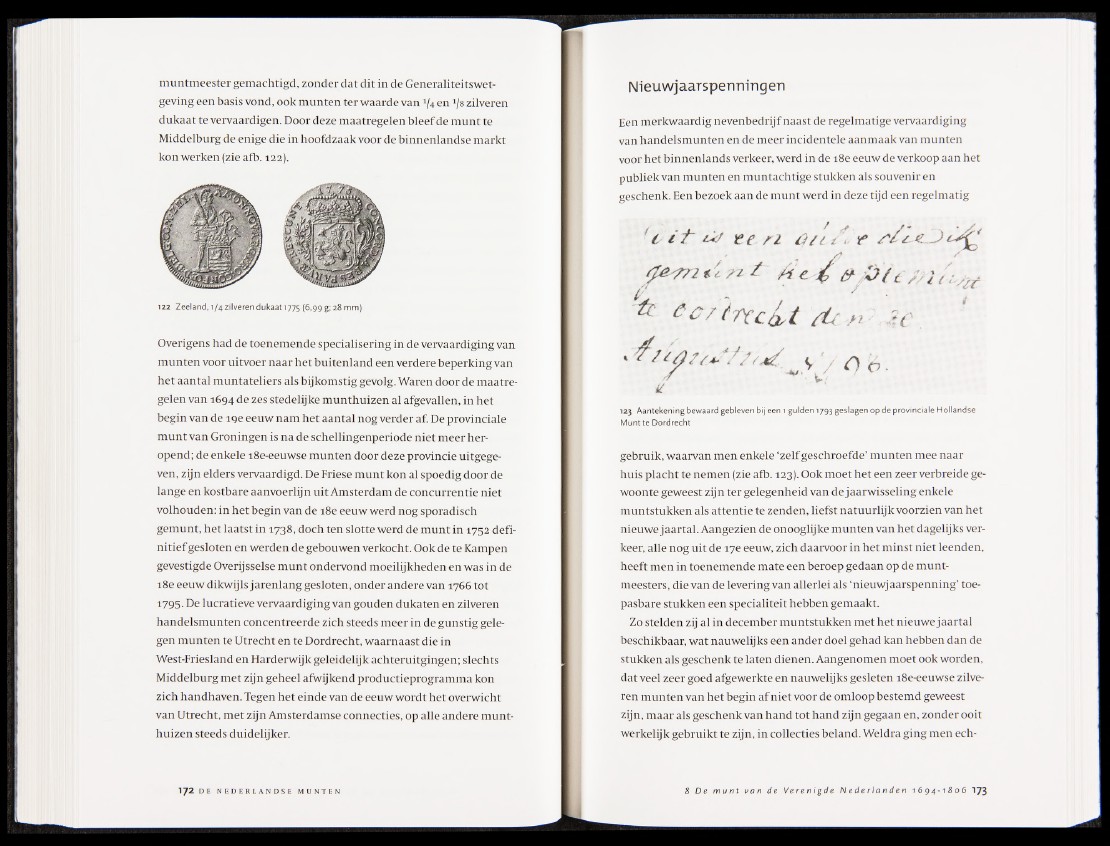 muntmeester gemachtigd, zonder dat dit in de Generaliteitswet-
geving een basis vond, ook munten ter waarde van 1/4 en 1/8 zilveren
dukaat te vervaardigen. Door deze maatregelen bleef de munt te
Middelburg de enige die in hoofdzaak voor de binnenlandse markt
kon werken (zie afb. 122).
122 Zeeland, 1/4 zilveren dukaat 1775 (6,99 g; 28 mm)
Overigens had de toenemende specialisering in de vervaardiging van
munten voor uitvoer naar het buitenland een verdere beperking van
het aantal muntateliers als bijkomstig gevolg. Waren door de maatre-
gelen van 1694 de zes stedelijke munthuizen al afgevallen, in het
begin van de 19e eeuw nam het aantal nog verder af. De provinciale
munt van Groningen is na de schellingenperiode niet meer her-
opend; de enkele 18e-eeuwse munten door deze provincie uitgege-
ven, zijn elders vervaardigd. De Friese munt kon al spoedig door de
lange en kostbare aanvoerlijn uit Amsterdam de concurrentie niet
volhouden: in het begin van de 18e eeuw werd nog sporadisch
gemunt, het laatst in 1738, doch ten slotte werd de munt in 1752 defi-
nitief gesloten en werden de gebouwen verkocht. Ook de te Kampen
gevestigde Overijsselse munt ondervond moeilijkheden en was in de
18e eeuw dikwijls jarenlang gesloten, onder andere van 1766 tot
1795. De lucratieve vervaardiging van gouden dukaten en zilveren
handelsmunten concentreerde zich steeds meer in de gunstig gele-
gen munten te Utrecht en te Dordrecht, waarnaast die in
West-Friesland en Harderwijk geleidelijk achteruitgingen; slechts
Middelburg met zijn geheel afwijkend productieprogramma kon
zich handhaven. Tegen het einde van de eeuw wordt het overwicht
van Utrecht, met zijn Amsterdamse connecties, op alle andere munt-
huizen steeds duidelijker.
172 DE NEDERLANDSE MUNTEN
Nieuwjaarspenningen
Een merkwaardig nevenbedrijf naast de regelmatige vervaardiging
van handelsmunten en de meer incidentele aanmaak van munten
voor het binnenlands verkeer, werd in de 18e eeuw de verkoop aan het
publiek van munten en muntachtige stukken als souvenir en
geschenk. Een bezoek aan de munt werd in deze tijd een regelmatig
een die ik
gemunt heb op
te
Augustus
123 Aantekening bewaard gebleven bij een 1 gulden 1793 geslagen op de provinciale Hollandse
Munt te Dordrecht
gebruik, waarvan men enkele 'zelf geschroefde' munten mee naar
huis placht te nemen (zie afb. 123). Ook moet het een zeer verbreide ge-
woonte geweest zijn ter gelegenheid van de jaarwisseling enkele
muntstukken als attentie te zenden, liefst natuurlijk voorzien van het
nieuwe jaartal. Aangezien de onooglijke munten van het dagelijks ver-
keer, alle nog uit de 17e eeuw, zich daarvoor in het minst niet leenden,
heeft men in toenemende mate een beroep gedaan op de munt-
meesters, die van de levering van allerlei als 'nieuwjaarspenning' toe-
pasbare stukken een specialiteit hebben gemaakt.
Zo stelden zij al in december muntstukken met het nieuwe jaartal
beschikbaar, wat nauwelijks een ander doel gehad kan hebben dan de
stukken als geschenk te laten dienen. Aangenomen moet ook worden,
dat veel zeer goed afgewerkte en nauwelijks gesleten 18e-eeuwse zilve-
ren munten van het begin af niet voor de omloop bestemd geweest
zijn, maar als geschenk van hand tot hand zijn gegaan en, zonder ooit
werkelijk gebruikt te zijn, in collecties beland. Weldra ging men ech-
8 De munt van de Verenigde Nederlanden 1694-1806 173